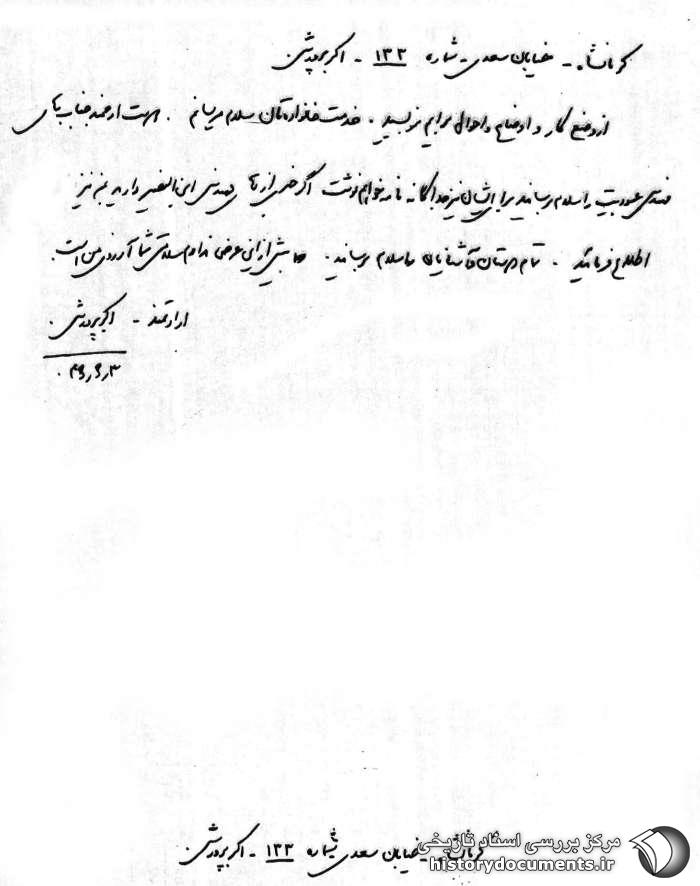 کرمانشاه - خیابان سعدی - شماره ۱۳۳ - اکبر پرورش
از وضع کار و اوضاع و احوال برایم بنویسید. خدمت خانواده‌تان سلام میرسانم. دوست ارجمند جناب آقای
مهندس عبودیت را سلام برسانید برای ایشان نیز جداگانه نامه خواهم نوشت اگر خبری از آقای مهندس دارید بمن نیز
اطلاع فرمائید. تمام دوستان و آشنایان را سلام برسانید. بیش از این عرضی ندارم سلامتی شما آرزوی من است.
ارادتمند - اکبر پرورش
۴۹٫۹٫۳
کرمانشاه - خیابان سعدی شماره ۱۳۳ - اکبر پرورش
مرکز بررسی اسناد تاریخی
historydocuments.ir